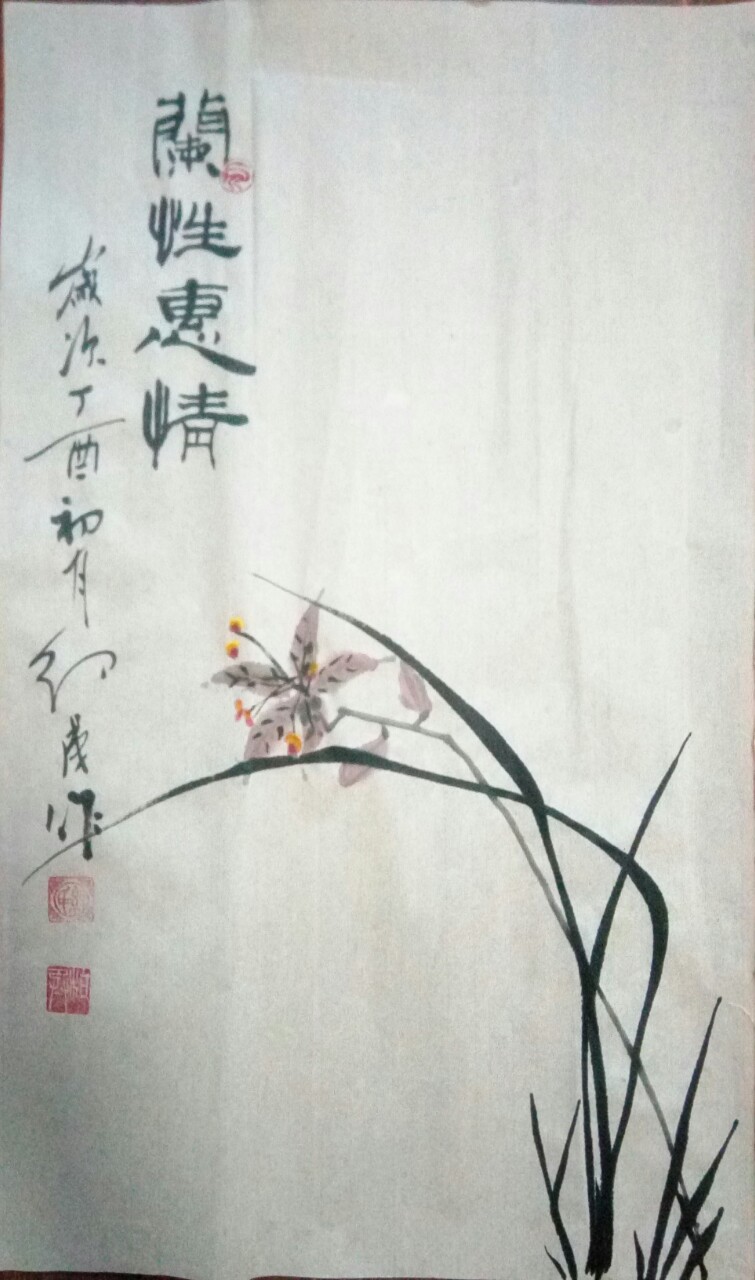 蘭性惠情
歲次丁酉初月
作